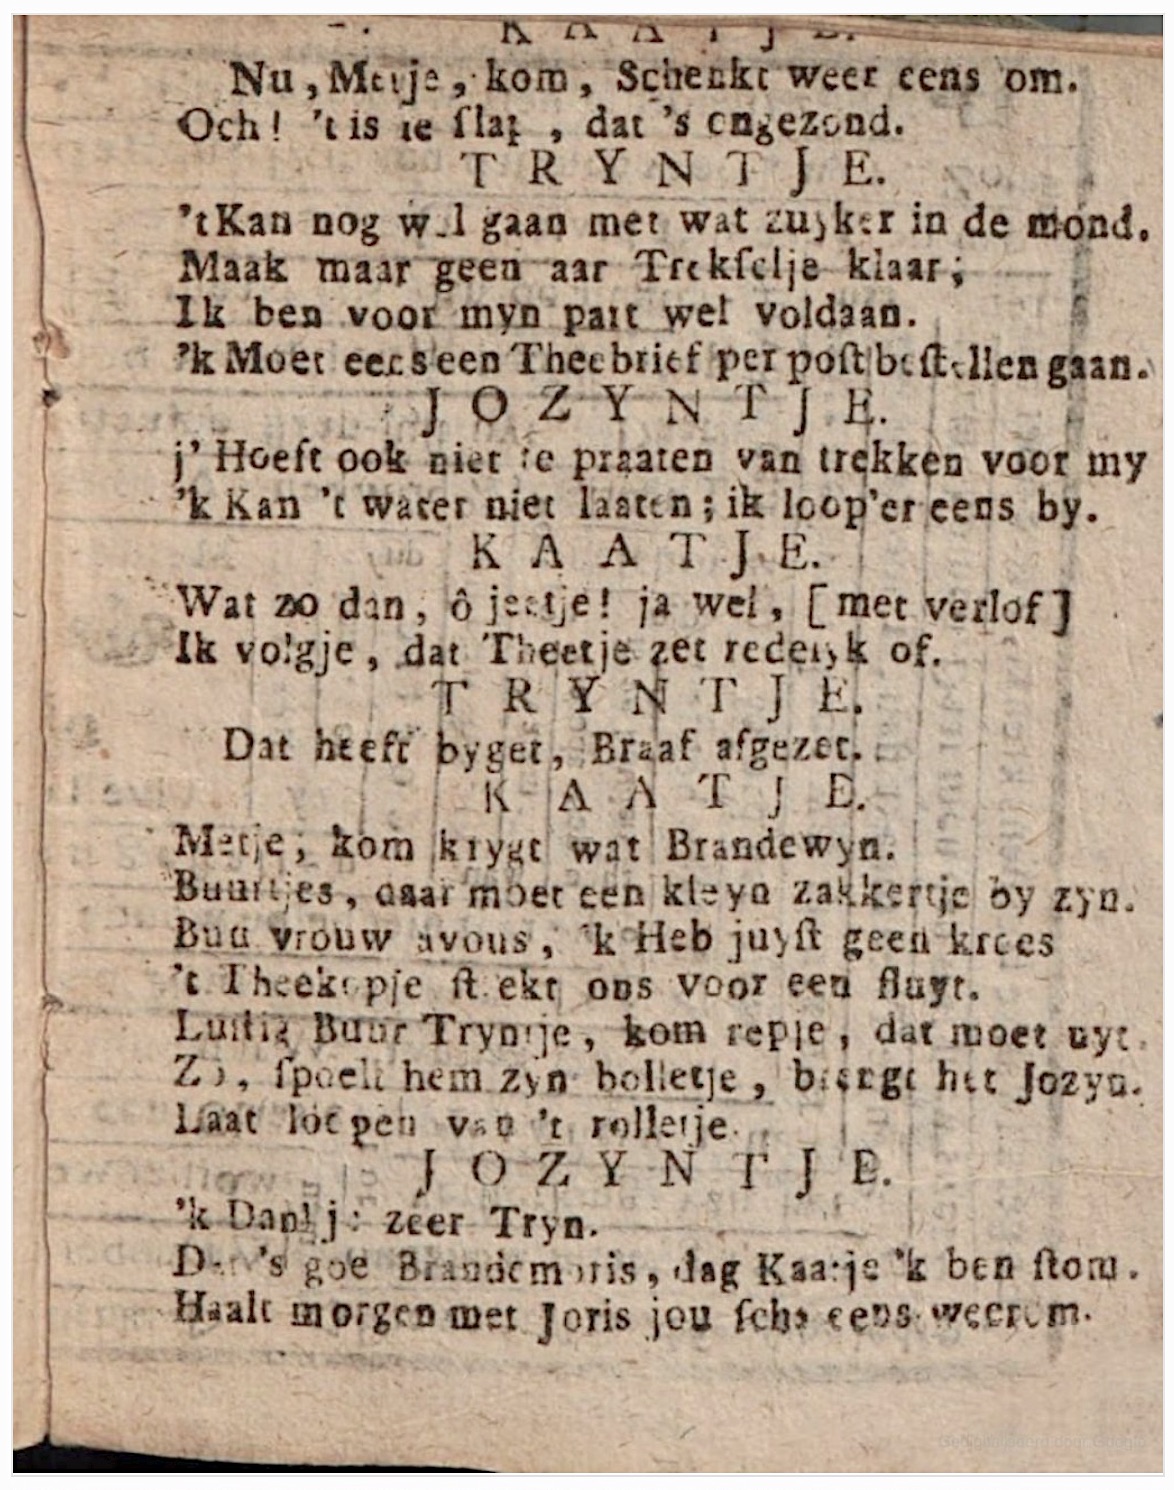 K A A T J E.
Nu, Metje, kom, Schenkt weer eens om.
Och! 't is te ſlap, dat 's ongezond.
T R Y N T J E.
't Kan nog wel gaan met wat zuyker in de mond.
Maak maar geen aar Trekſelje klaar;
Ik ben voor myn part wel voldaan.
'k Moet eens een Theebrief per poſt beſtellen gaan.
J O Z Y N T J E.
j' Hoeft ook niet te praaten van trekken voor my
'k Kan 't water niet laaten; ik loop'er eens by.
K A A T J E.
Wat zo dan, ô jeetje! ja wel, [met verlof]
Ik volgje, dat Theetje zet redelyk of.
T R Y N T J E.
Dat heeft byget, Braaf afgezet.
K A A T J E.
Metje, kom krygt wat Brandewyn.
Buurtjes, daar moet een kleyn zakkertje by zyn.
Buu vrouw avous, 'k Heb juyſt geen kroes
't Theekopje ſtrekt ons voor een fluyt.
Luſtig Buur Tryntje, kom repje, dat moet uyt.
Zo, ſpoelt hem zyn bolletje, brengt het Jozyn.
Laat loepen van 't rolletje.
J O Z Y N T J E.
'k Dank je zeer Tryn.
's goe Brandemoris, dag Kaatje 'k ben ſtom.
Haalt morgen met Joris jou ſcha eens weerom.